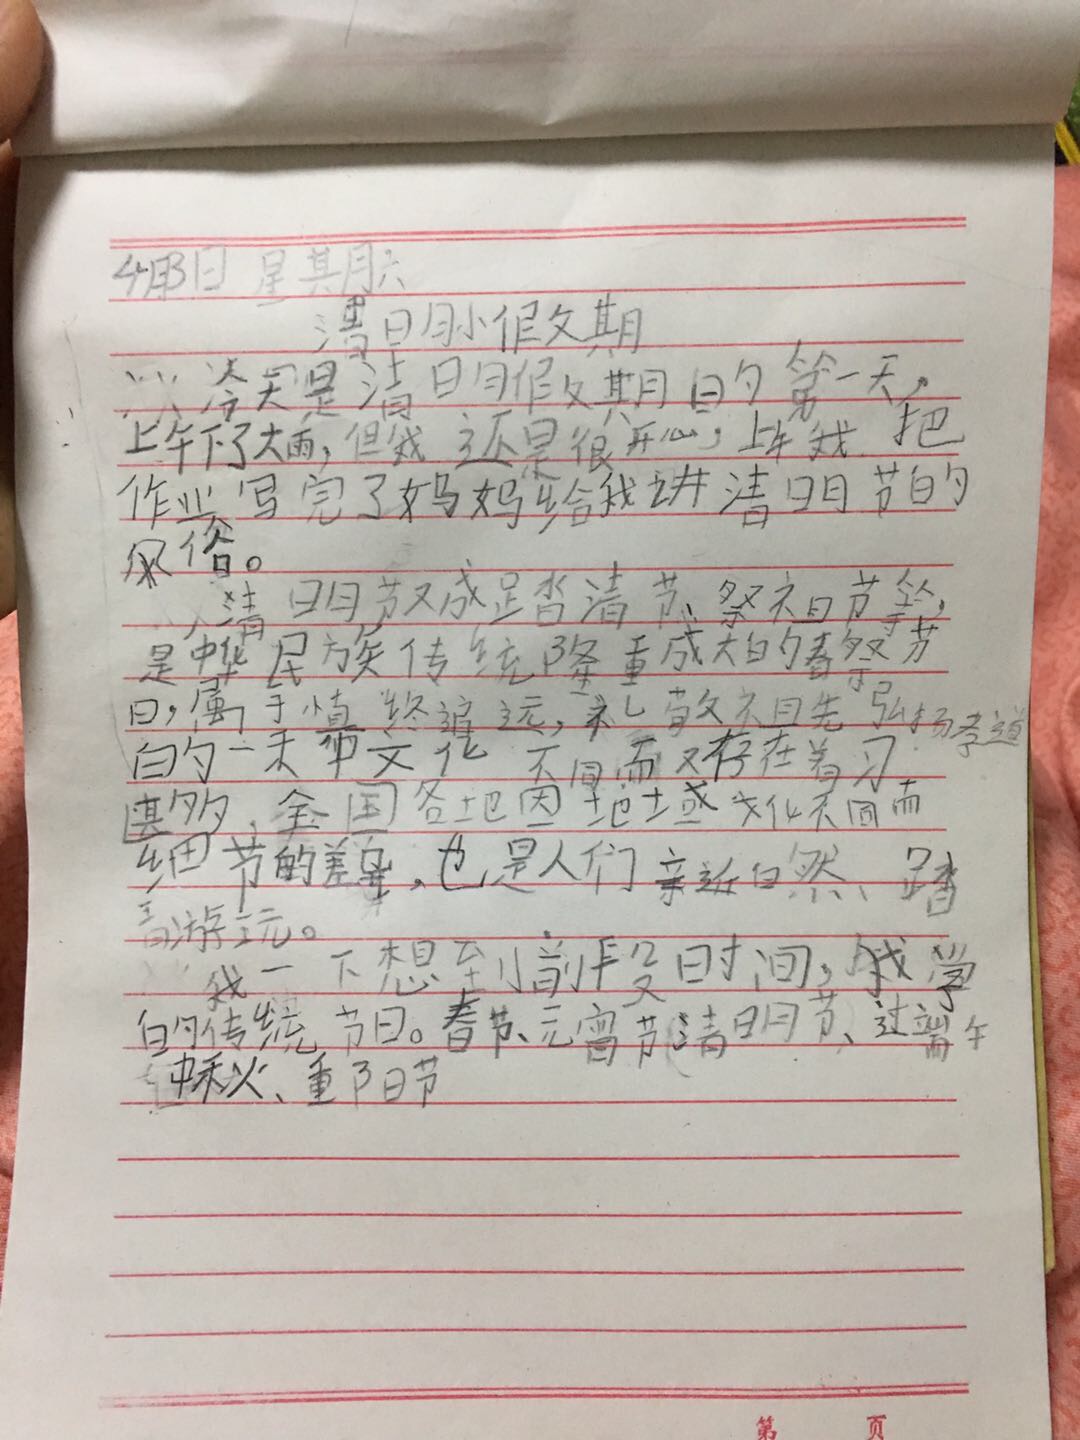 4月3日 星期六
清明小假期
今天是清明假期的第一天,
上午下了大雨,但我还是很开心,上午我把
作业写完了妈妈给我讲清明节的
风俗。
清明节又成足踏清节、祭祖节等,
是中华民族传统隆重成大的春祭节
日,属于慎终追远,礼敬祖先弘扬孝道
的一末中文化不同而又存在着习
甚多,全国各地因地域文化不同而
细节的差异,也是人们亲近自然、踏
青游玩。
我一下想到前段时间,我学
的传统节日。春节、元宵节清明节、过端午
中秋、重阳节
第 页